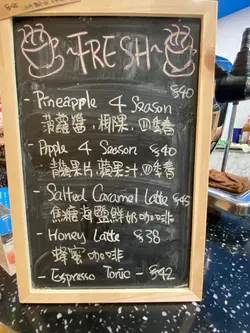 ~FRESH~
- Pineapple 4 Season $40
菠蘿醬, 椰果, 四季春
- Apple 4 Season $40
青蘋果片, 蘋果汁, 四季春
- Salted Caramel Latte $45
焦糖海鹽鮮奶咖啡
- Honey Latte $38
蜂蜜咖啡
- Espresso Tonic - $42